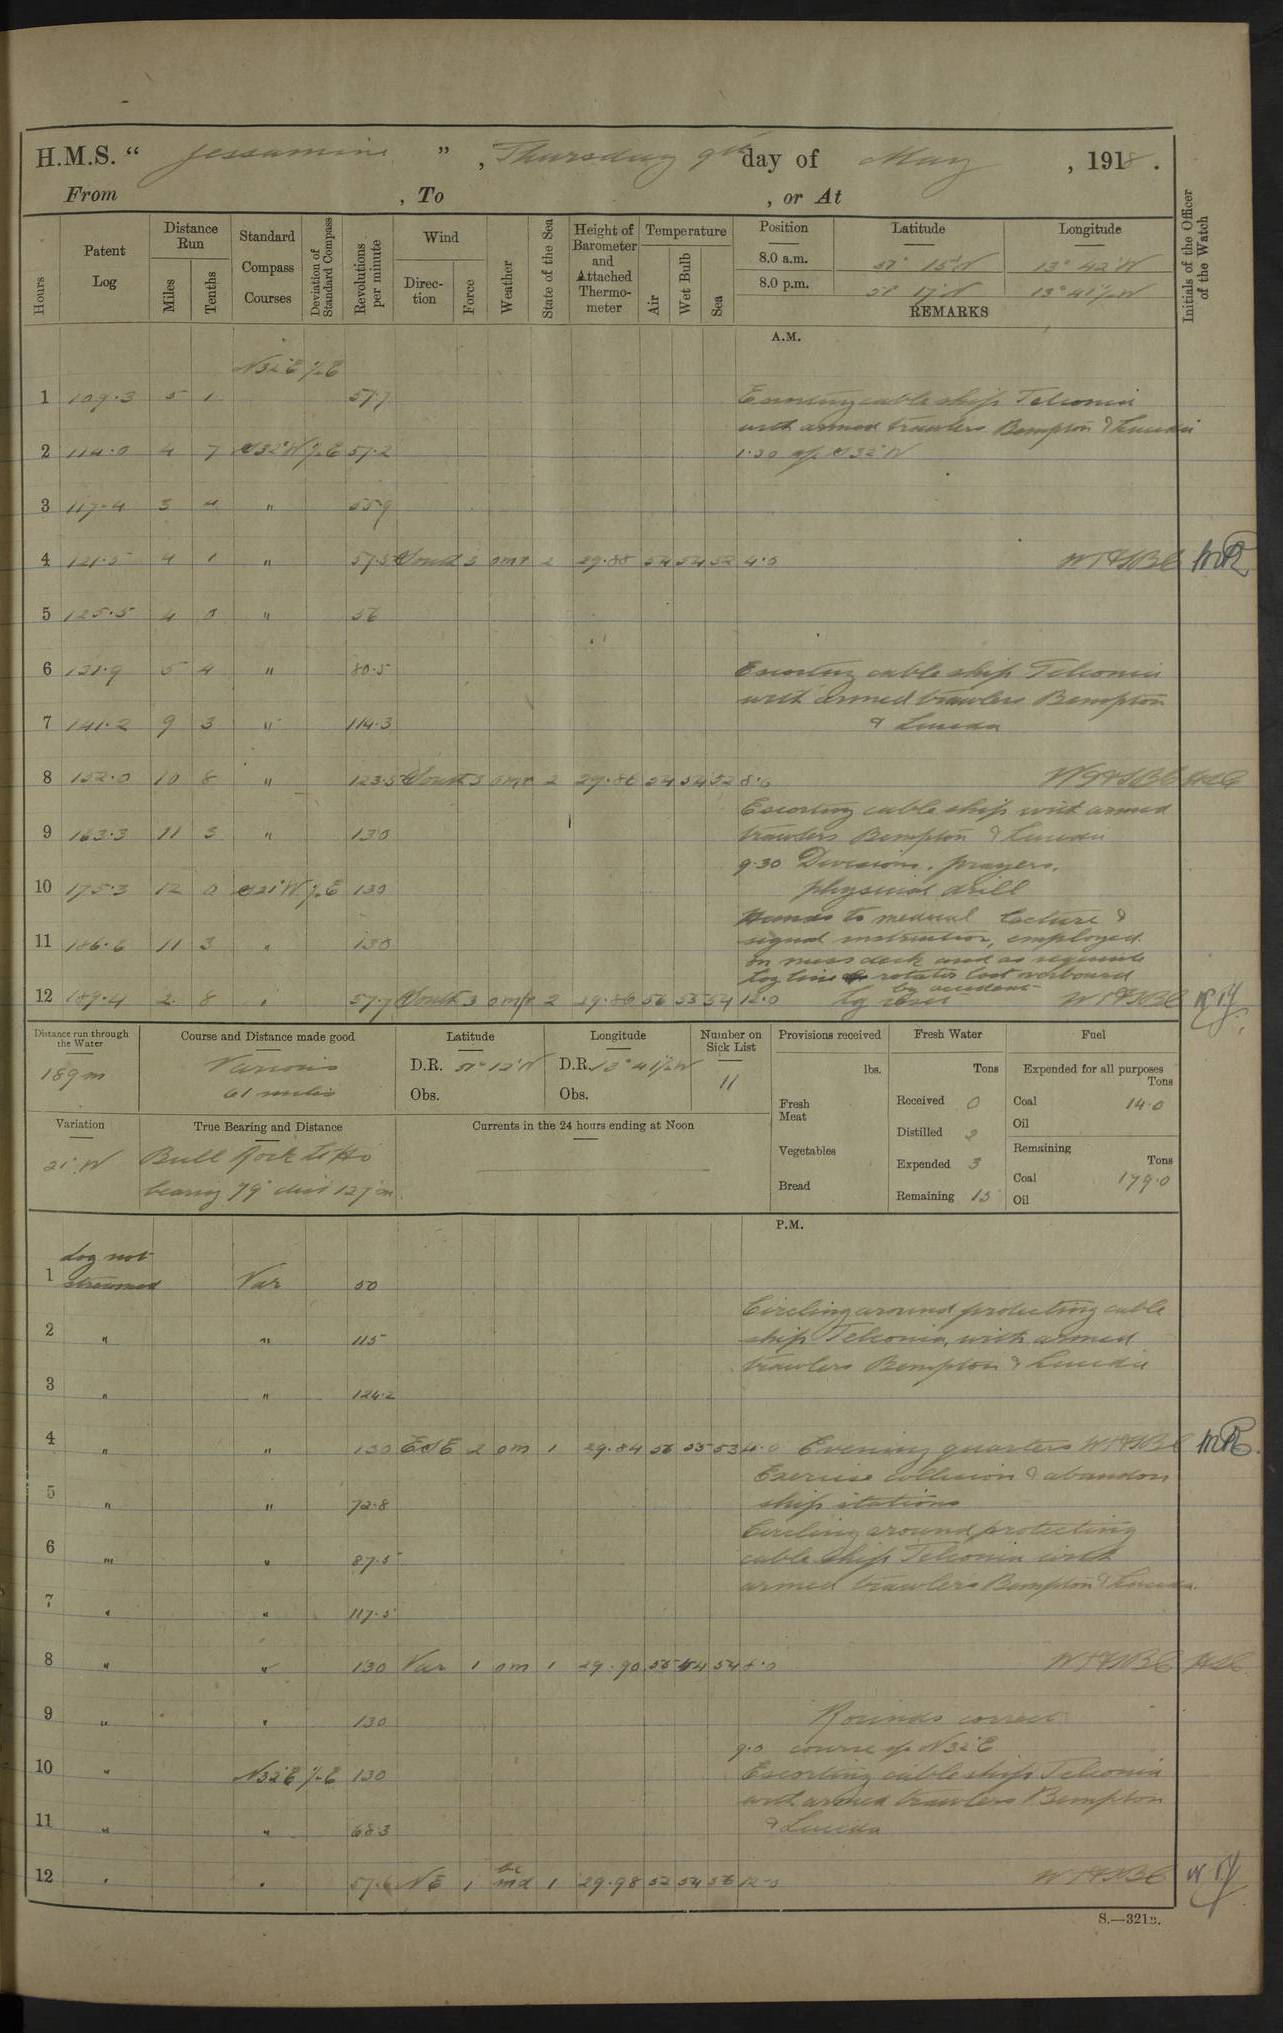 H.M.S. “ Jessamine ” , Thursday 9th day of May , 1918 .
From , To , or At
Hours
Patent Log
Distance Run
Miles
Tenths
Standard Compass Courses
Deviation of Standard Compass
Revolutions per minute
Wind
Direction
Force
Weather
State of the Sea
Height of Barometer and Attached Thermometer
Temperature
Air
Wet Bulb
Sea
Position Latitude Longitude
8.0 a.m. 51° 15'N 13° 42'W
8.0 p.m. 51° 17'N 13° 41½W
REMARKS
Initials of the Officer of the Watch
A.M.
N32°E ½E
1 109.3 5 1 57.7 Escorting cable ship Telconia
with armed trawlers Bempton & Lucida
2 114.0 4 7 S32°W ½E 57.2 1.30 a/c S32°W
3 117.4 3 4 " 55.9
4 121.5 4 1 " 57.5 South 3 omr 2 29.88 54 54 52 4.0
5 125.5 4 0 " 56
6 131.9 5 4 " 80.5 Escorting cable ship Telconia
with armed trawlers Bempton
7 141.2 9 3 " 114.3 & Lucida
8 152.0 10 8 " 123.5 South 3 omr 2 29.86 54 54 52 8.0
Escorting cable ship with armed
9 163.3 11 3 " 130 trawlers Bempton & Lucida
9.30 Divisions, prayers,
10 175.3 12 0 S21°W ½E 130 physical drill
Hands to medical lecture &
11 186.6 11 3 " 130 signal instruction, employed
on mess deck and as requisite
Log line & rotator lost overboard
by accident
12 189.4 2 8 " 57.7 South 3 omr 2 29.86 56 55 54 12.0 Log reset
Distance run through the Water
189 m
Course and Distance made good
Various
61 miles
Latitude
D.R. 51° 12'N
Obs.
Longitude
D.R. 13° 41½W
Obs.
Number on Sick List
11
Provisions received
lbs.
Fresh Meat
Vegetables
Bread
Fresh Water
Tons
Received 0
Distilled 2
Expended 3
Remaining 15
Fuel
Expended for all purposes
Tons
Coal 14.0
Oil
Remaining
Tons
Coal 179.0
Oil
Variation
21°W
True Bearing and Distance
Bull Rock Lt Ho
bearing 79° dist 127 m
Currents in the 24 hours ending at Noon
P.M.
Log not
1 streamed Var 50
Circling around protecting cable
2 " " 115 ship Telconia, with armed
trawlers Bempton & Lucida
3 " " 124.2
4 " " 130 ESE 2 om 1 29.84 56 55 53 4.0 Evening quarters
Exercise collision & abandon
5 " " 72.8 ship stations
Circling around protecting
6 " " 87.5 cable ship Telconia with
armed trawlers Bempton & Lucida.
7 " " 117.5
8 " " 130 Var 1 om 1 29.90 55 54 54 8.0
9 " " 130 Rounds correct
9.0 course a/c N32°E
10 " N32°E ½E 130 Escorting cable ship Telconia
with armed trawlers Bempton
11 " " 68.3 & Lucida
12 " " 57.6 NE 1 bc md 1 29.98 52 54 56 12.0
S.—321B.